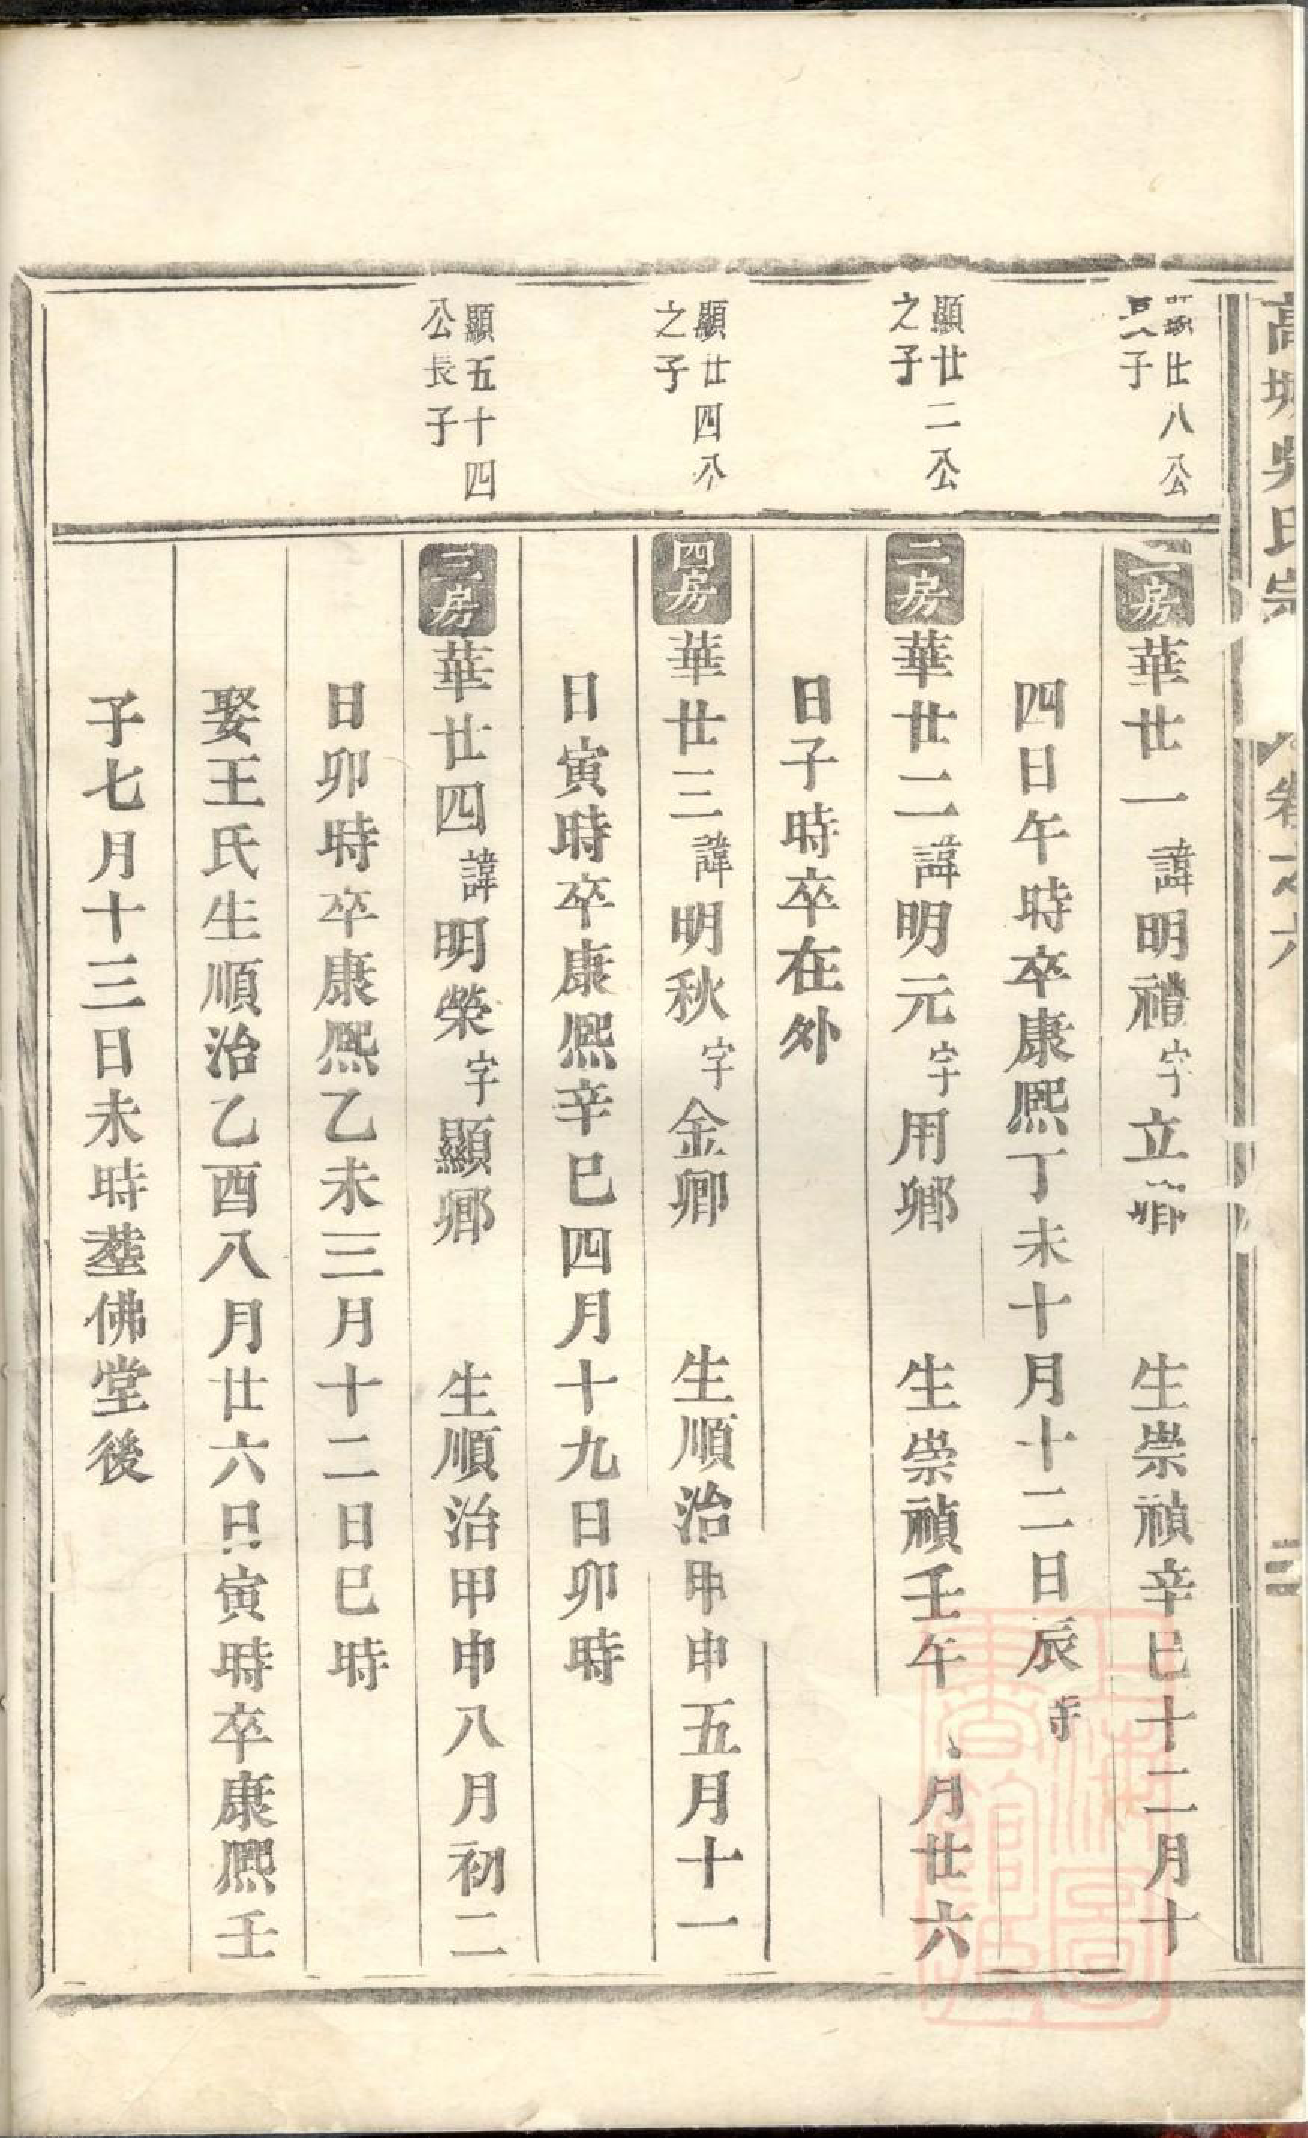 高城吳氏宗
卷之六
二
顯廿八公
子
二房華廿一諱明禮字立卿 生崇禎辛巳十二月十
四日午時卒康熙丁未十月十二日辰時
顯廿二公
之子
二房華廿二諱明元字用卿 生崇禎壬午 月廿六
日子時卒在外
顯廿四公
之子
四房華廿三諱明秋字金卿 生順治甲申五月十一
日寅時卒康熙辛巳四月十九日卯時
顯五十四
公長子
三房華廿四諱明榮字顯卿 生順治甲申八月初二
日卯時卒康熙乙未三月十二日巳時
娶王氏生順治乙酉八月廿六日寅時卒康熙壬
子七月十三日未時塟佛堂後
上海圖
書館藏